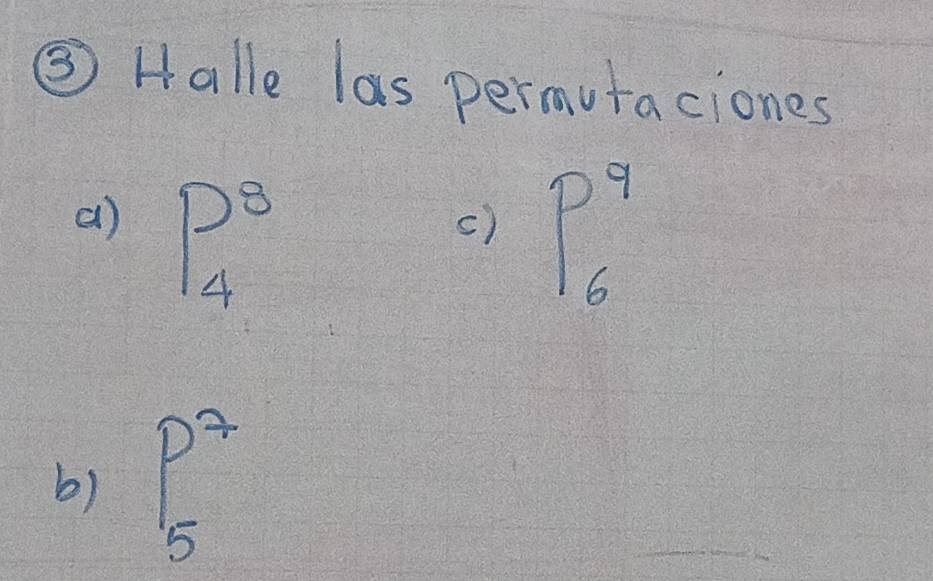 ③ Halle las permutaciones
a) P⁸₄ c) P⁹₆
b) P⁷₅